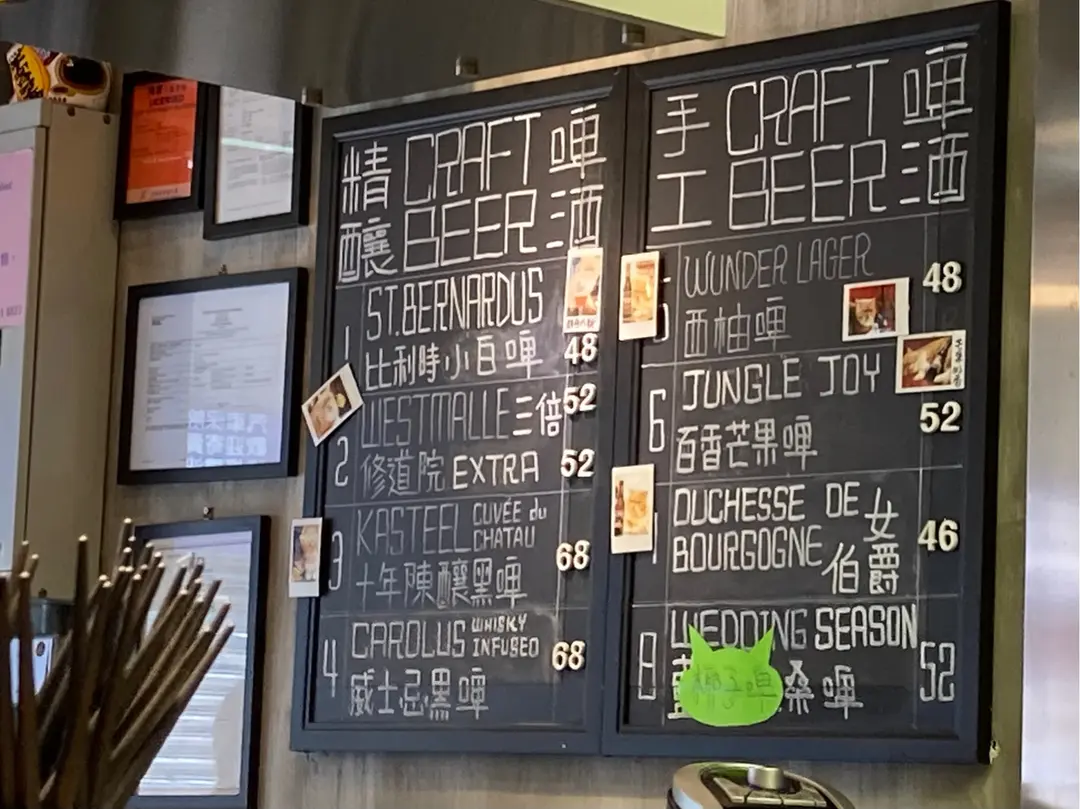 精 CRAFT 啤
釀 BEER 酒
1 ST.BERNARDUS
比利時小白啤 48
2 WESTMALLE 三倍 52
修道院 EXTRA 52
3 KASTEEL CUVÉE du
CHATAU
十年陳釀黑啤 68
4 CAROLUS WHISKY
INFUSED 68
威士忌黑啤
手 CRAFT 啤
工 BEER 酒
WUNDER LAGER 48
西柚啤
6 JUNGLE JOY 52
百香芒果啤
DUCHESSE DE 女
BOURGOGNE 伯爵 46
8 WEDDING SEASON 52
桑啤